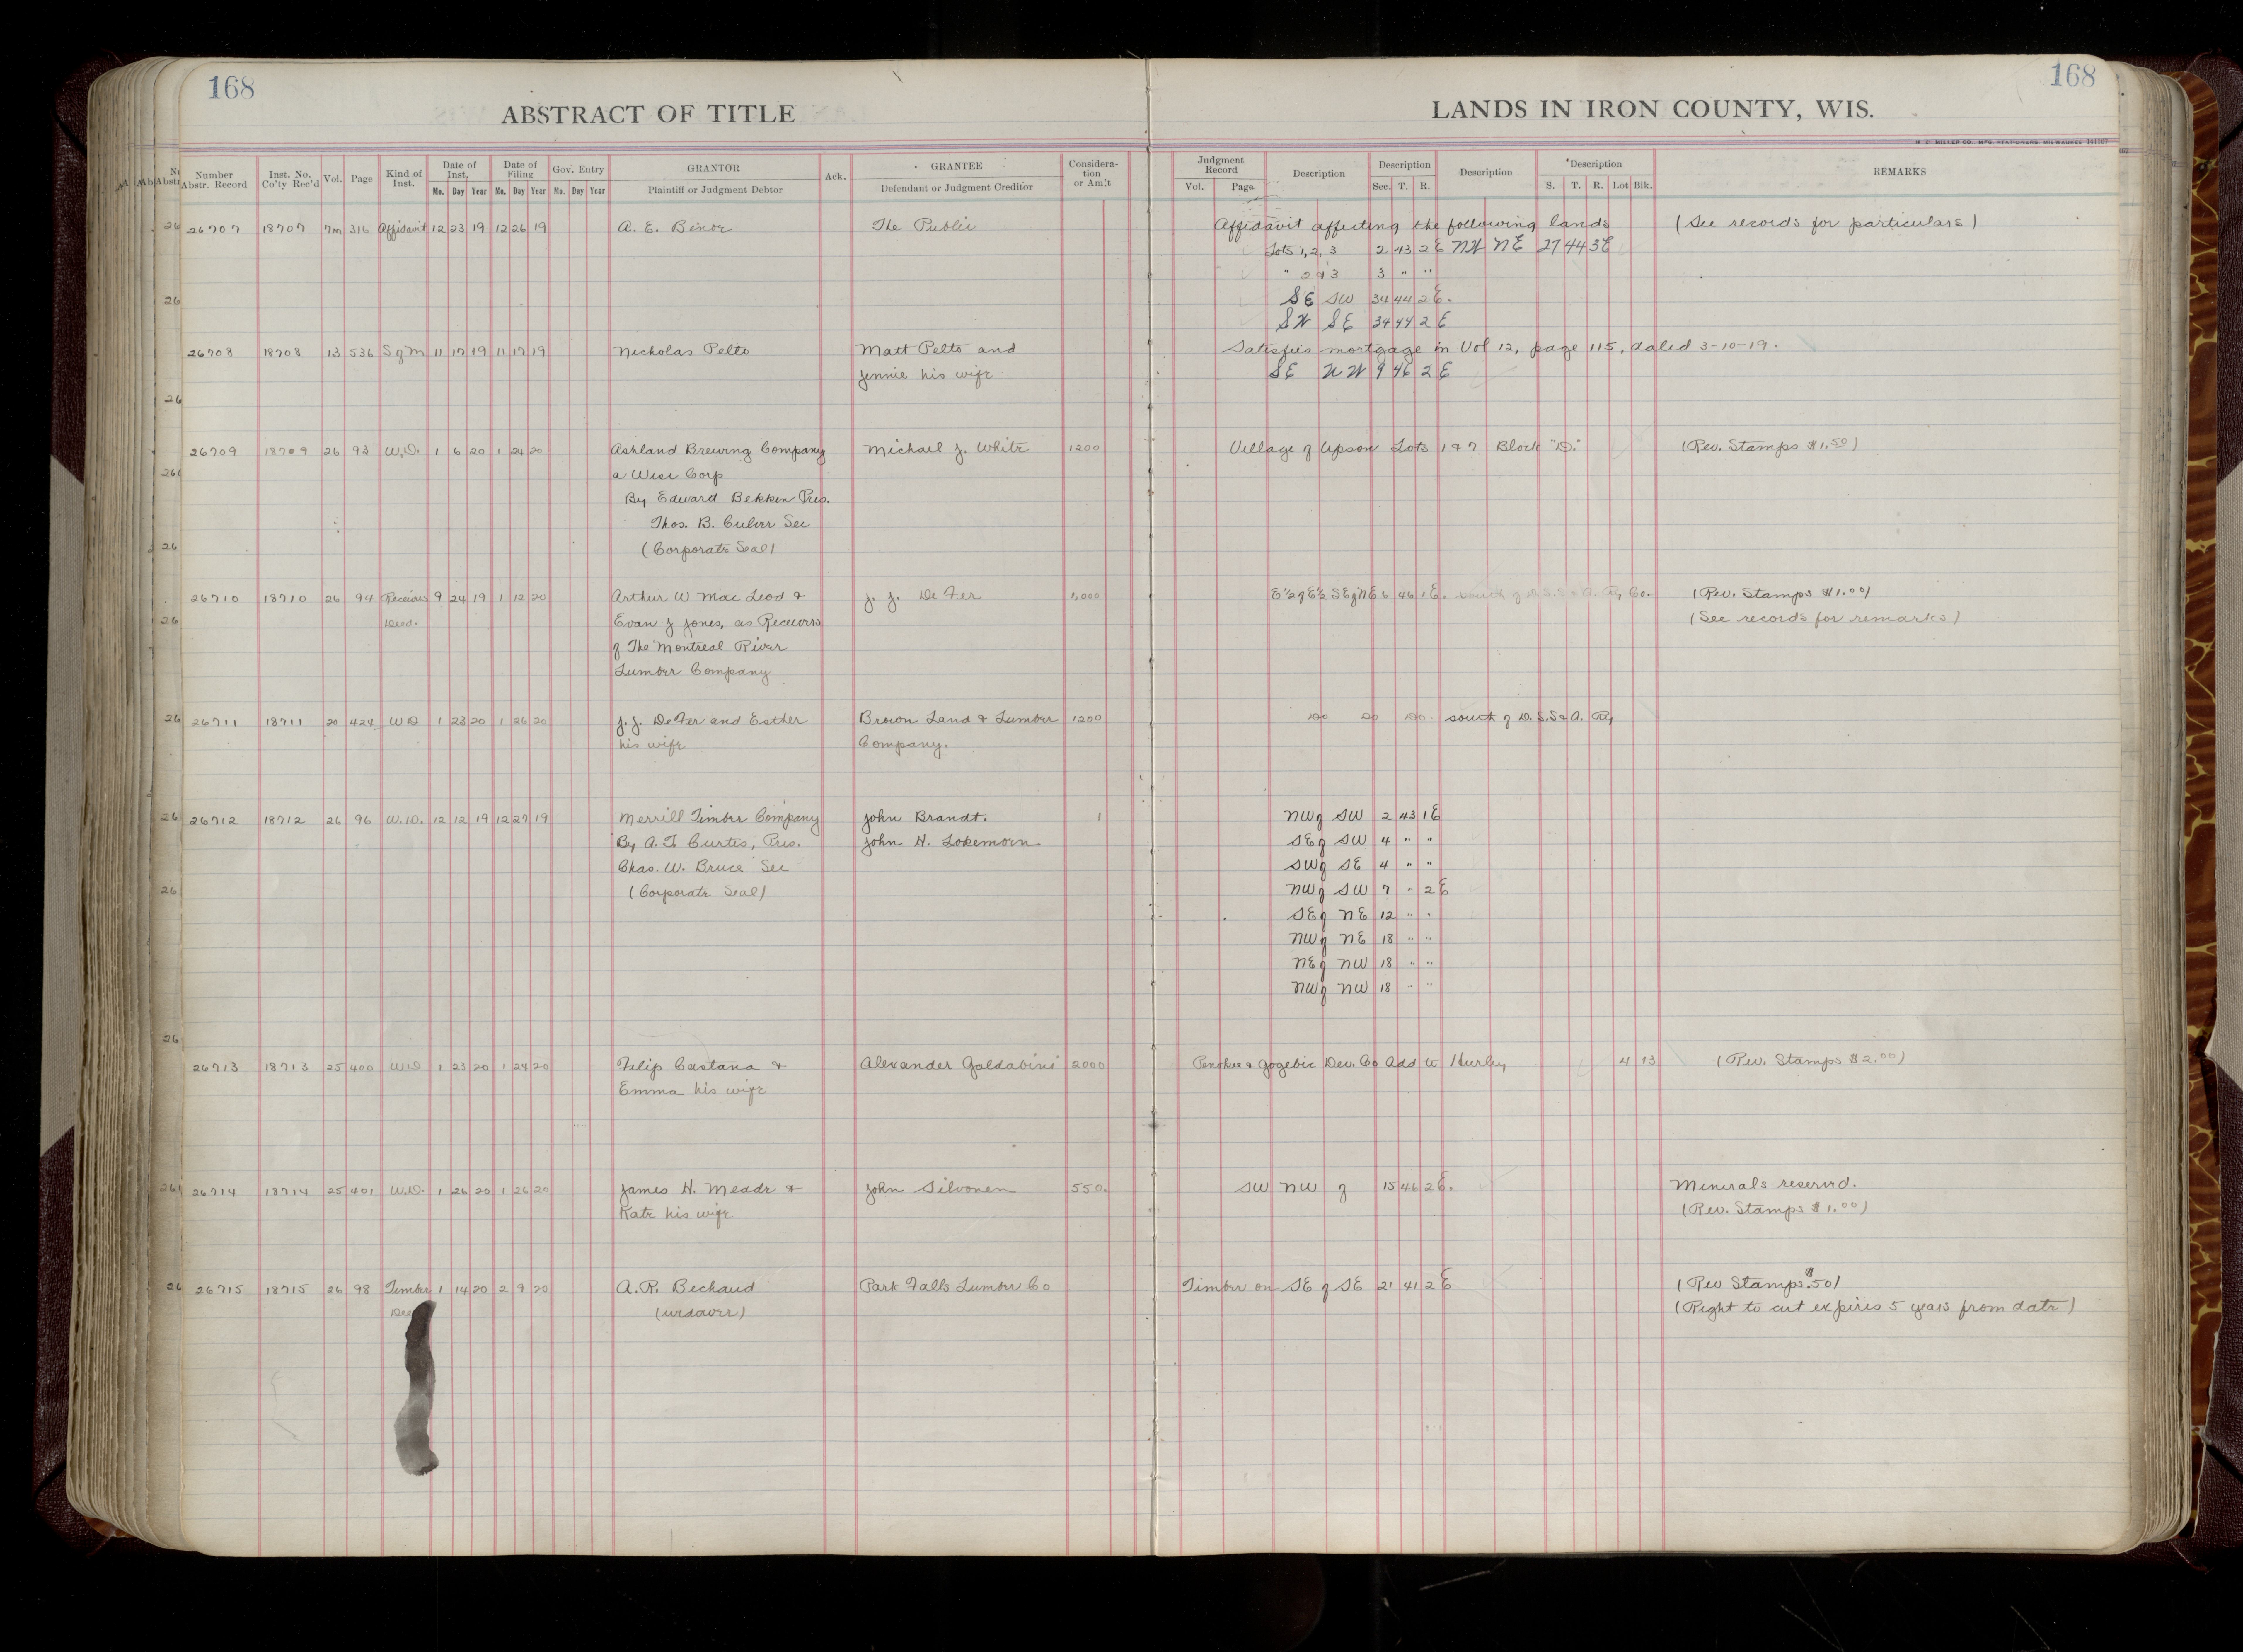 168
168
ABSTRACT OF TITLE
LANDS IN IRON COUNTY, WIS.
H. C. MILLER CO., MFG. STATIONERS, MILWAUKEE
Number Abstr. Record Inst. No. Co'ty Rec'd Vol. Page Kind of Inst. Date of Inst. Mo. Day Year Date of Filing Mo. Day Year Gov. Entry Mo. Day Year GRANTOR Plaintiff or Judgment Debtor Ack. GRANTEE Defendant or Judgment Creditor Considera-tion or Am't Judgment Record Vol. Page Description Description Sec. T. R. Description Description S. T. R. Lot Blk. REMARKS
26707 18707 7m 316 Affidavit 12 23 19 12 26 19 A. E. The Public Affidavit affecting the following lands (See records for particulars)
Lots 1, 2, 3 2 43 2 E NW NE 27 44 3E
" 2 & 3 3 " "
SE SW 34 44 2 E.
SW SE 34 44 2 E
26708 18708 13 536 S of M 11 17 19 11 17 19 Nicholas Pelto Matt Pelto and Satisfies mortgage in Vol 12, page 115, dated 3-10-19.
Jennie his wife SE NW 9 46 2 E
26709 18709 26 93 W.D. 1 6 20 1 24 20 Ashland Brewing Company Michael J. White 1200 Village of Upson Lots 1 & 7 Block "D." (Rev. Stamps $1.50)
a Wisc Corp
By Edward Bekken Pres.
Thos. B. Culver Sec
(Corporate Seal)
26710 18710 26 94 Receivers 9 24 19 1 12 20 Arthur W Mac Leod & J. J. De Fer 1,000 E½ of E½ SE of NE 6 46 1 E. south of D.S.S. & A. Ry Co. (Rev. Stamps $1.00)
Deed. Evan J Jones, as Receivers (See records for remarks)
of The Montreal River
Lumber Company
26711 18711 20 424 W D 1 23 20 1 26 20 J. J. DeFer and Esther Brown Land & Lumber 1200 Do Do Do south of D. S.S & A. Ry
his wife Company.
26712 18712 26 96 W.D. 12 12 19 12 27 19 Merrill Timber Company John Brandt. 1 NW of SW 2 43 1 E
By A. F. Curtis, Pres. John H. SE of SW 4 " "
Chas. W. Bruce Sec SW of SE 4 " "
(Corporate Seal) NW of SW 7 " 2 E
SE of NE 12 " "
NW of NE 18 " "
NE of NW 18 " "
NW of NW 18 " "
26713 18713 25 400 W.D 1 23 20 1 24 20 Filip Castana & Alexander Galdabini 2000 Penokee & Gogebic Dev. Co Add to Hurley 4 13 (Rev. Stamps $2.00)
Emma his wife
26714 18714 25 401 W.D. 1 26 20 1 26 20 James H. Meade & John Silvonen 550. SW NW of 15 46 2 E. Minerals reserved.
Kate his wife (Rev. Stamps $1.00)
26715 18715 26 98 Timber 1 14 20 2 9 20 A. R. Bechaud Park Falls Lumber Co Timber on SE of SE 21 41 2 E (Rev Stamps $.50)
Deed (widower) (Right to cut expires 5 years from date)